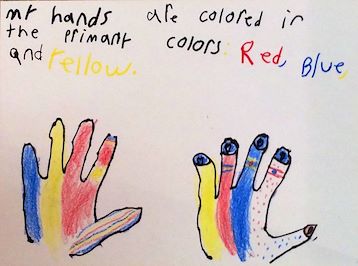 my hands are colored in
the primary colors: Red, Blue,
and Yellow.